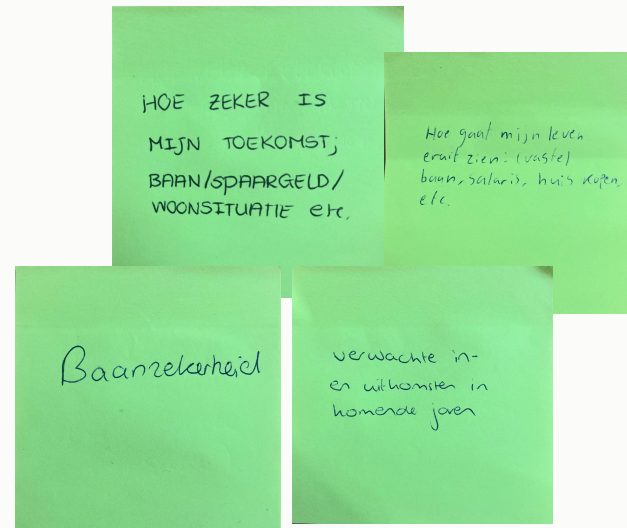 HOE ZEKER IS
MIJN TOEKOMST;
BAAN/SPAARGELD/
WOONSITUATIE etc.
Hoe gaat mijn leven
eruit zien: (vaste)
baan, salaris, huis kopen,
etc.
Baanzekerheid
verwachte in-
en uitkomsten in
komende jaren